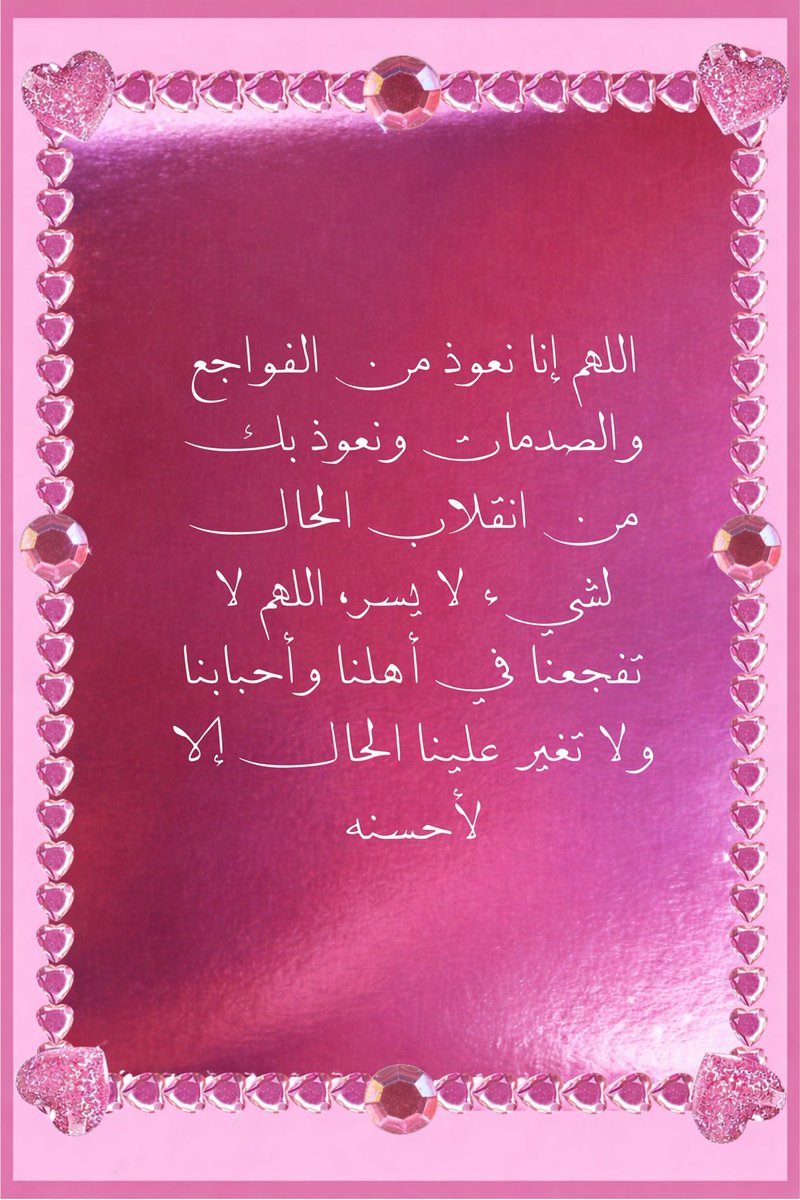 اللهم إنا نعوذ من الفواجع
والصدمات ونعوذ بك
من انقلاب الحال
لشيء لا يسر، اللهم لا
تفجعنا في أهلنا وأحبابنا
ولا تغير علينا الحال إلا
لأحسنه